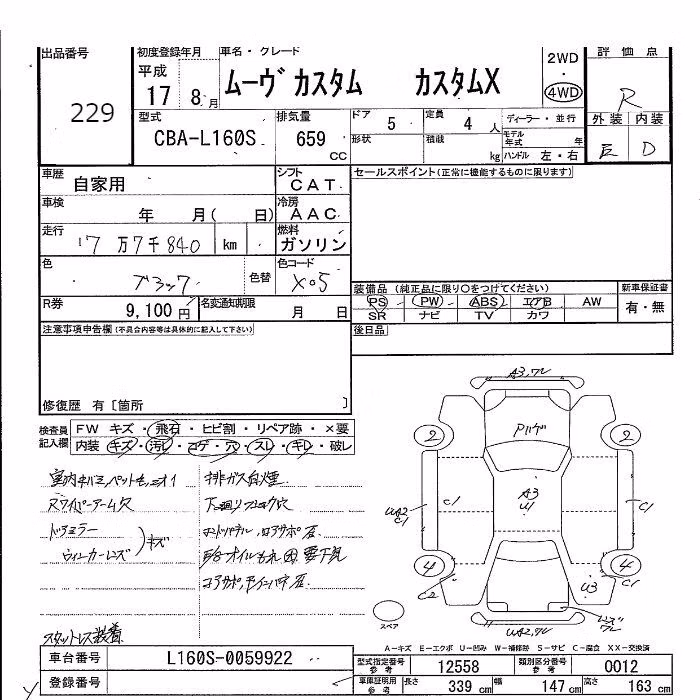 出品番号
229
初度登録年月
平成
17 8月
車名・グレード
ムーヴ カスタム カスタムX
2WD
・
4WD
評価点
R
型式
CBA-L160S
排気量
659
CC
ドア
5
定員
4 人
ディーラー・並行
形状
積載
kg
モデル年式 年
ハンドル 左・右
外装 内装
E D
車歴
自家用
シフト
CAT
車検
年 月( 日)
冷房
AAC
走行
17万7千840 km
燃料
ガソリン
色
ブラック
色替
色コード
X05
R券
9,100円
名変通知期限
月 日
セールスポイント(正常に機能するものに限ります)
装備品 (純正品に限り○をつけてください)
PS PW ABS エアB AW
SR ナビ TV カワ
新車保証書
有・無
後日品
注意事項申告欄(不具合内容等は具体的に記入して下さい)
修復歴 有 [箇所 ]
検査員
記入欄
FW キズ・飛石・ヒビ割・リペア跡・×要
内装 キズ・汚レ・コゲ・穴・スレ・キレ・破レ
排ガス白煙
ドアミラー
ウィンカーレンズ
キズ
スタットレス装着
A3,ワレ
2 2
C1
UA2
C1
A3
U1
C1
4 4
C2
U3
UA2,ワレ
スペア
A-キズ E-エクボ U-凹み W-補修跡 S-サビ C-腐食 XX-交換済
車台番号
L160S-0059922
登録番号
型式指定番号
参考
12558
類別区分番号
参考
0012
車庫証明用
参考
長さ 339 cm 幅 147 cm 高さ 163 cm